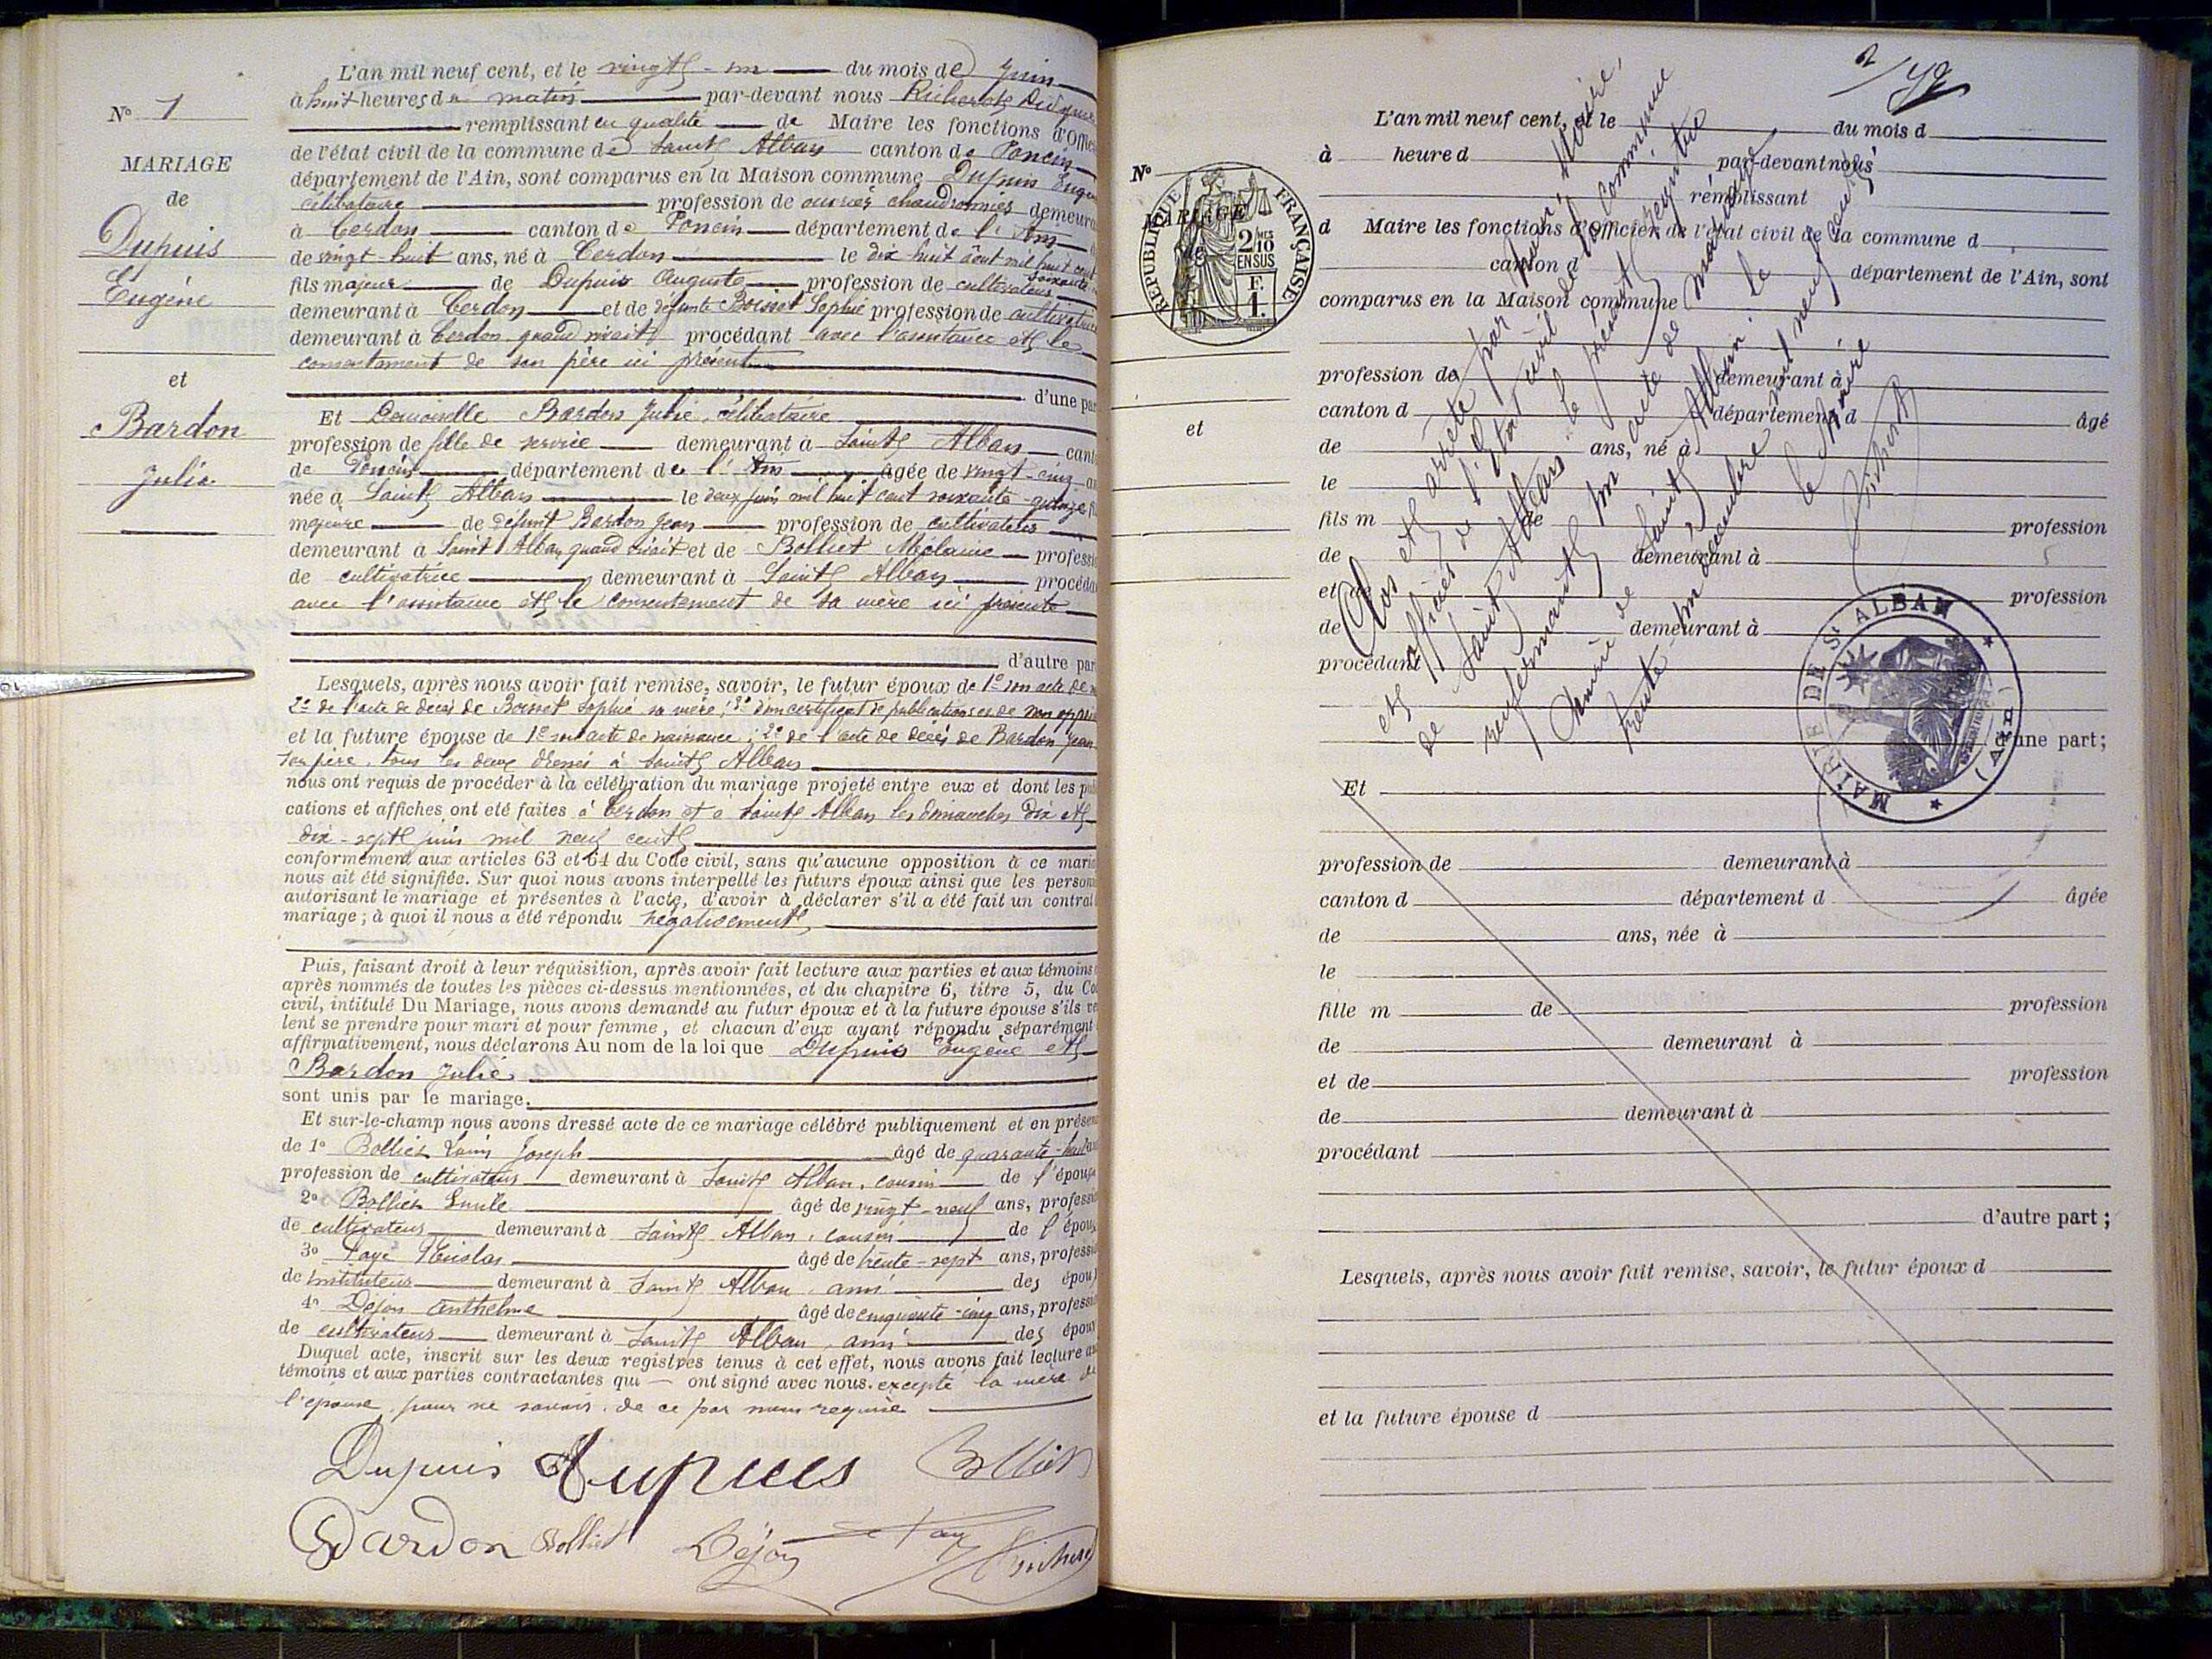 L'an mil neuf cent, et le vingt-un du mois de Juin
à huit heures du matin par-devant nous Richerot
remplissant en qualité de Maire les fonctions d'Offic
de l'état civil de la commune de Saint Alban canton de Poncin
département de l'Ain, sont comparus en la Maison commune Dupuis Eugè
célibataire profession de ouvrier chaudronnier demeura
à Cerdon canton de Poncin département de l'Ain
de vingt-huit ans, né à Cerdon le dix huit août mil huit cent
soixante
fils majeur de Dupuis Auguste profession de cultivateur
demeurant à Cerdon et de défunte Boisset Sophie profession de cultivatrice
demeurant à Cerdon quand vivait procédant avec l'assistance et le
consentement de son père ici présent
d'une par
N° 1
MARIAGE
de
Dupuis
Eugène
et
Bardon
Julie
Et Demoiselle Bardon Julie, célibataire
profession de fille de service demeurant à Saint Alban cant
de Poncin département de l'Ain âgée de vingt-cinq an
née à Saint Alban le deux juin mil huit cent soixante-quinze fi
majeure de défunt Bardon Jean profession de cultivateur
demeurant à Saint Alban quand vivait et de Bolliet Mélanie professi
de cultivatrice demeurant à Saint Alban procéda
avec l'assistance et le consentement de sa mère ici présente
d'autre par
Lesquels, après nous avoir fait remise, savoir, le futur époux de 1° son acte de n
2° de l'acte de décès de Boisset Sophie sa mère; 3° d'un certificat de publications et de non oppos
et la future épouse de 1° son acte de naissance; 2° de l'acte de décès de Bardon Jean
son père, tous les deux dressés à Saint Alban
nous ont requis de procéder à la célébration du mariage projeté entre eux et dont les pub
cations et affiches ont été faites à Cerdon et à Saint Alban les dimanches dix et
dix-sept juin mil neuf cent
conformément aux articles 63 et 64 du Code civil, sans qu'aucune opposition à ce maria
nous ait été signifiée. Sur quoi nous avons interpellé les futurs époux ainsi que les person
autorisant le mariage et présentes à l'acte, d'avoir à déclarer s'il a été fait un contrat
mariage; à quoi il nous a été répondu négativement
Puis, faisant droit à leur réquisition, après avoir fait lecture aux parties et aux témoins
après nommés de toutes les pièces ci-dessus mentionnées, et du chapitre 6, titre 5, du Co
civil, intitulé Du Mariage, nous avons demandé au futur époux et à la future épouse s'ils ve
lent se prendre pour mari et pour femme, et chacun d'eux ayant répondu séparément
affirmativement, nous déclarons Au nom de la loi que Dupuis Eugène et
Bardon Julie
sont unis par le mariage.
Et sur-le-champ nous avons dressé acte de ce mariage célébré publiquement et en présen
de 1° Bolliet Louis Joseph âgé de quarante-huit
profession de cultivateur demeurant à Saint Alban, cousin de l'épous
2° Bolliet Emile âgé de vingt-neuf ans, professi
de cultivateur demeurant à Saint Alban, cousin de l'épous
3° Faye Nicolas âgé de trente-sept ans, professi
de Instituteur demeurant à Saint Alban, ami des épou
4° Déjon Anthelme âgé de cinquante-cinq ans, professi
de cultivateur demeurant à Saint Alban, ami des épou
Duquel acte, inscrit sur les deux registres tenus à cet effet, nous avons fait lecture au
témoins et aux parties contractantes qui ont signé avec nous, excepté la mère de
l'épouse, pour ne savoir, de ce par nous requise
Dupuis Dupuis Bolliet
Bardon Bolliet Déjon Faye
Richerot
2
L'an mil neuf cent, et le du mois d
à heure d par-devant nous
remplissant
d Maire les fonctions d'Officier de l'état civil de la commune d
canton d département de l'Ain, sont
comparus en la Maison commune
N°
MARIAGE
de
RÉPUBLIQUE FRANÇAISE
2/10 MES
EN SUS
F.
1.
et
profession de demeurant à
canton d département d âgé
de ans, né à
le
fils m de profession
de demeurant à
et de profession
de demeurant à
procédant
d'une part;
Clos et arrêté par nous, Maire,
et officier de l'état civil de la commune
de Saint Alban le présent registre
renfermant un acte de mariage
Mairie de Saint Alban le
trente-un décembre mil neuf cent
le Maire
Richerot
MAIRIE DE St ALBAN
(AIN)
Et
profession de demeurant à
canton d département d âgée
de ans, née à
le
fille m de profession
de demeurant à
et de profession
de demeurant à
procédant
d'autre part;
Lesquels, après nous avoir fait remise, savoir, le futur époux d
et la future épouse d